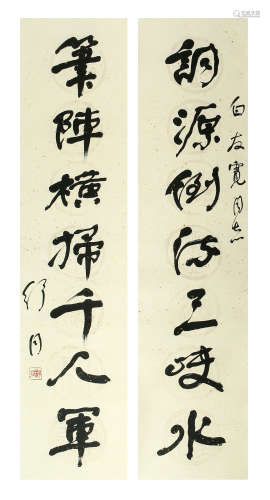 白友寬同志
詞源倒流三峽水
筆陣橫掃千人軍
舒同